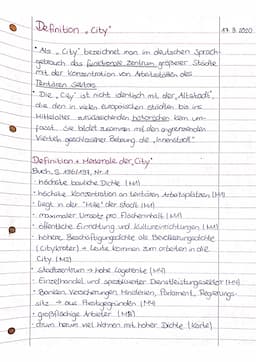 Definition „City"
17.3.2020
• Als „City" bezeichnet man im deutschen Sprach-
gebrauch das funktionale Zentrum größerer Städte
mit der Konzentration von Arbeitsstätten des
Tertiären Sektors.
• Die „City" ist nicht identisch mit der „Altstadt",
die den in vielen europäischen Städten bis ins
Mittelalter zurückreichenden historischen Kern um-
fasst. Sie bildet zusammen mit den angrenzenden
Vierteln geschlossener Bebauung die „Innenstadt"
Definition + Merkmale der „City"
Buch, S. 196/197, Nr. 1
- höchste bauliche Dichte (M1)
- höchste Konzentration an tertiären Arbeitsplätzen (M1)
- liegt in der "Mitte" der Stadt (M1)
- maximaler Umsatz pro Flächeneinheit (M1)
- öffentliche Einrichtung und Kultureinrichtungen (M1)
- höhere Beschäftigungsdichte als Bevölkerungsdichte
(Citykrater) → Leute kommen zum arbeiten in die
City (M2)
- Stadtzentrum → hohe Lagerente (M4)
- Einzelhandel und spezialisierter Dienstleistungssektor (M4)
- Banken, Versicherungen, Ministerien, Parlament, Regierungs-
sitz → aus Prestigegründen (M4)
- großflächige Anbieter
- drum herum viel Wohnen mit hoher Dichte (Karte)